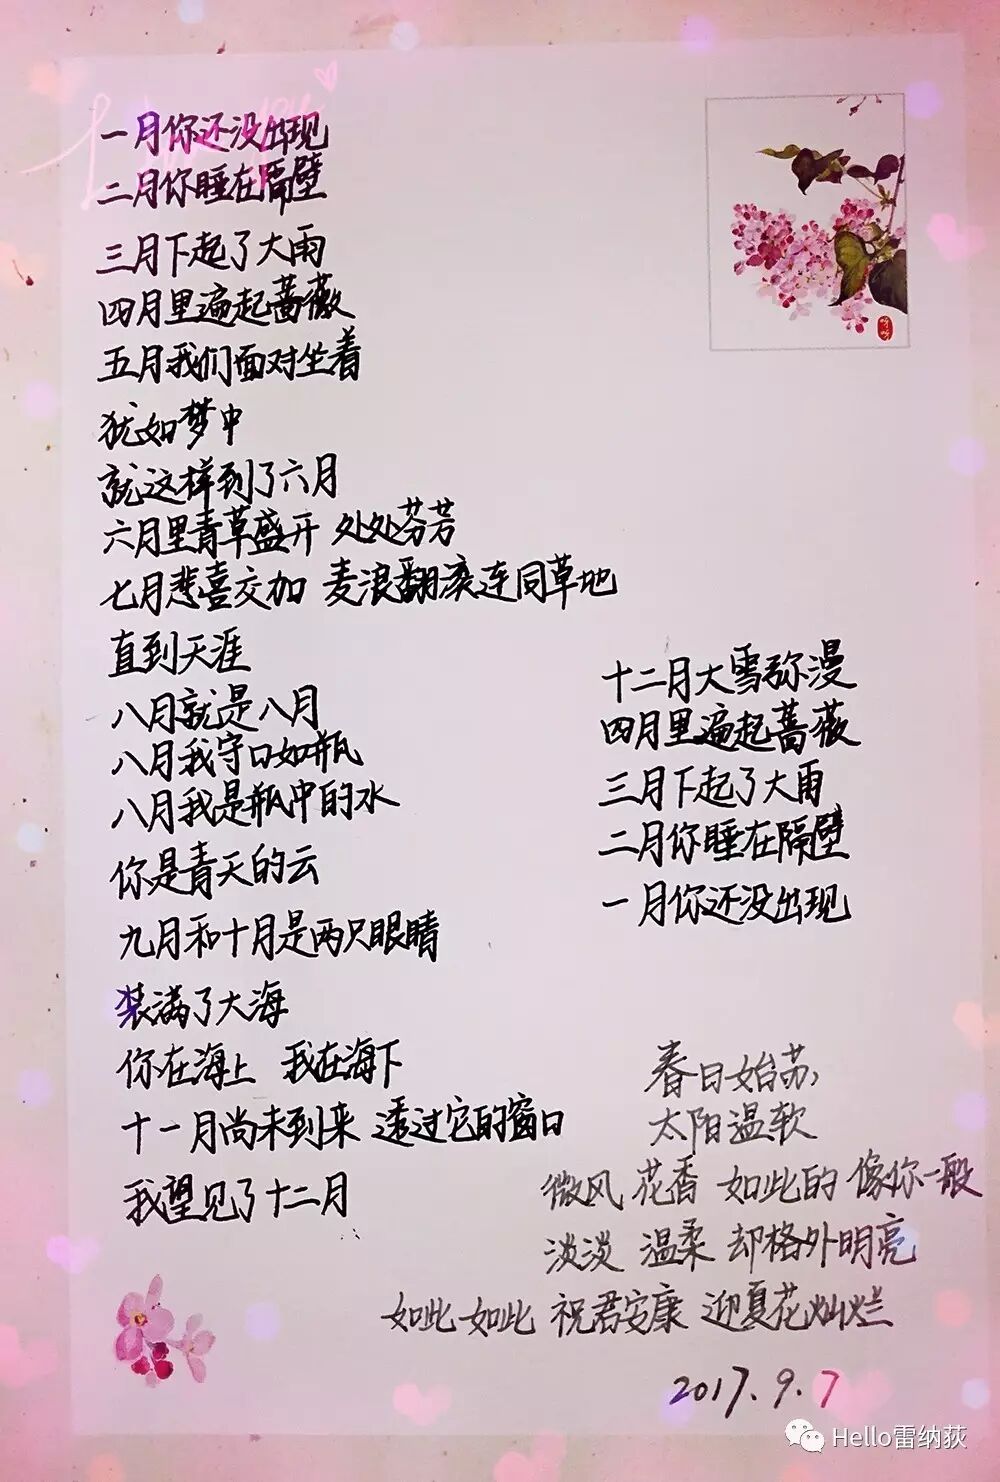 一月你还没出现
二月你睡在隔壁
三月下起了大雨
四月里遍起蔷薇
五月我们面对坐着
犹如梦中
就这样到了六月
六月里青草盛开 处处芬芳
七月悲喜交加 麦浪翻滚连同草地
直到天涯
八月就是八月
八月我守口如瓶
八月我是瓶中的水
你是青天的云
九月和十月是两只眼睛
装满了大海
你在海上 我在海下
十一月尚未到来 透过它的窗口
我望见了十二月
十二月大雪弥漫
四月里遍起蔷薇
三月下起了大雨
二月你睡在隔壁
一月你还没出现
春日始苏,
太阳温软
微风 花香 如此的 像你一般
淡淡 温柔 却格外明亮
如此 如此 祝君安康 迎夏花灿烂
2017.9.7
Hello雷纳荻